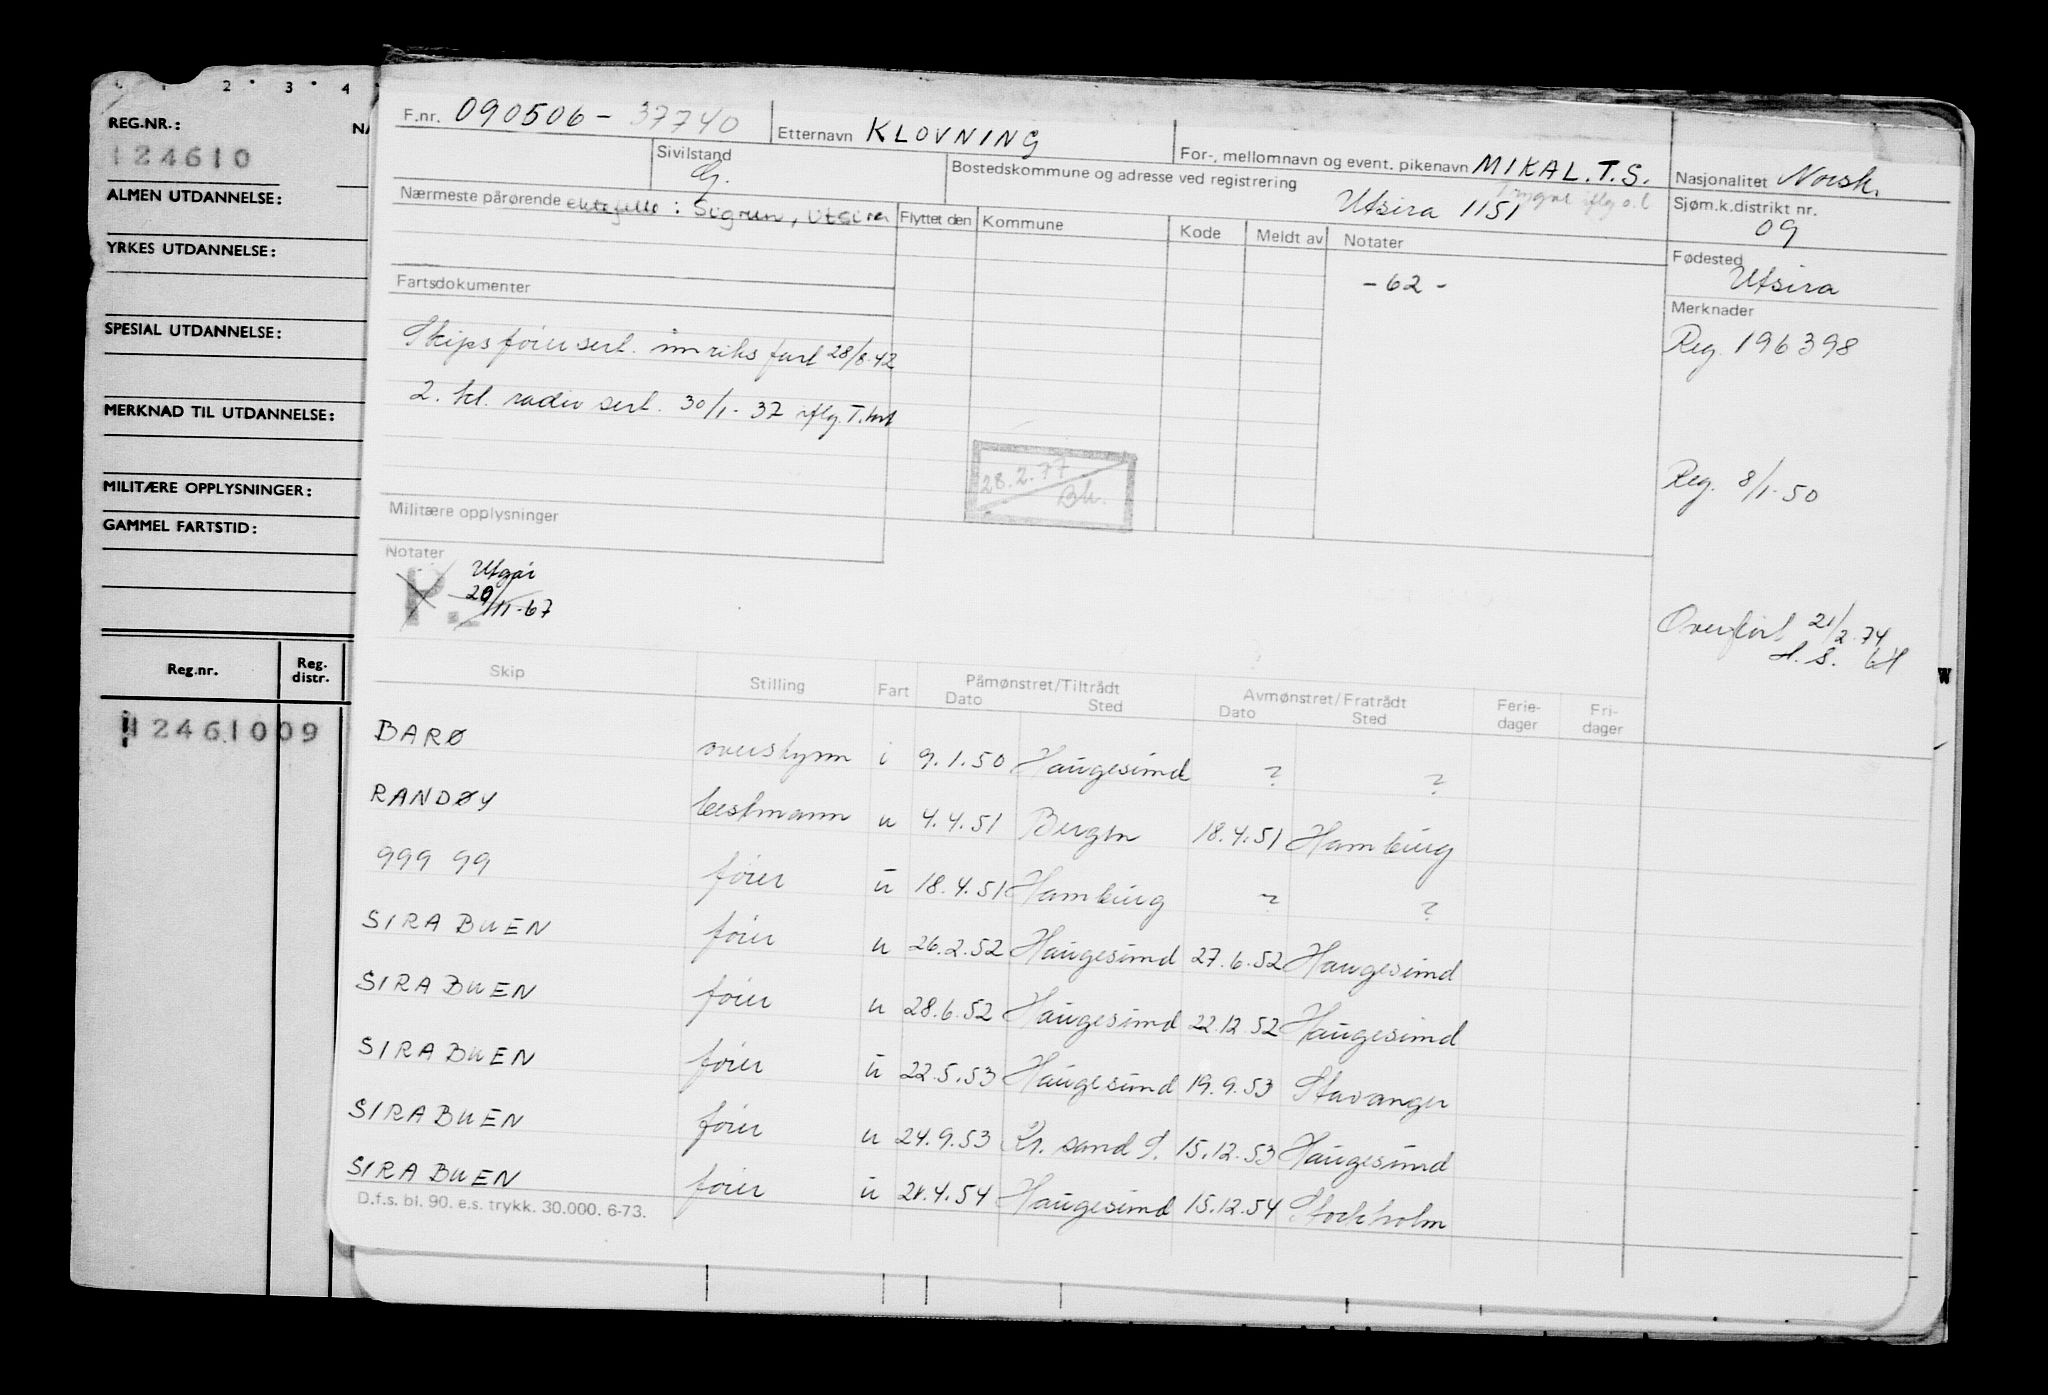 1 2 3 4
REG.NR.: NA
124610
ALMEN UTDANNELSE:
YRKES UTDANNELSE:
SPESIAL UTDANNELSE:
MERKNAD TIL UTDANNELSE:
MILITÆRE OPPLYSNINGER:
GAMMEL FARTSTID:
Reg.nr. Reg. distr.
12461009
F.nr. 090506-37740 Etternavn KLOVNING For-, mellomnavn og event. pikenavn MIKAL.T.S. Nasjonalitet Norsk.
Sivilstand G. Bostedskommune og adresse ved registrering Utsira 1151 Sjøm.k.distrikt nr. 09
Nærmeste pårørende ektefelle: Sigrun, Utsira Flyttet den Kommune Kode Meldt av Notater
-62-
Fødested Utsira
Merknader
Reg. 196398
Reg. 8/1-50
Overført 21/2.74
Fartsdokumenter
Skipsførersert. innriks fart 28/8-42
2. kl. radio sert. 30/1-37 iflg. T.
28.2.77
Bh.
Militære opplysninger
Notater
P. Utgår
29/11-67
Skip Stilling Fart Påmønstret/Tiltrådt Avmønstret/Fratrådt Ferie-dager Fri-dager
Dato Sted Dato Sted
BARØ overstyrm i 9.1.50 Haugesund ? ?
RANDØY bestmann u 4.4.51 Bergen 18.4.51 Hamburg
999 99 fører u 18.4.51 Hamburg ? ?
SIRABUEN fører u 26.2.52 Haugesund 27.6.52 Haugesund
SIRABUEN fører u 28.6.52 Haugesund 22.12.52 Haugesund
SIRABUEN fører u 22.5.53 Haugesund 19.9.53 Stavanger
SIRABUEN fører u 24.9.53 Kr.sand S. 15.12.53 Haugesund
SIRABUEN fører u 21.4.54 Haugesund 15.12.54 Stockholm
D.f.s. bl. 90. e.s. trykk. 30.000. 6-73.
W